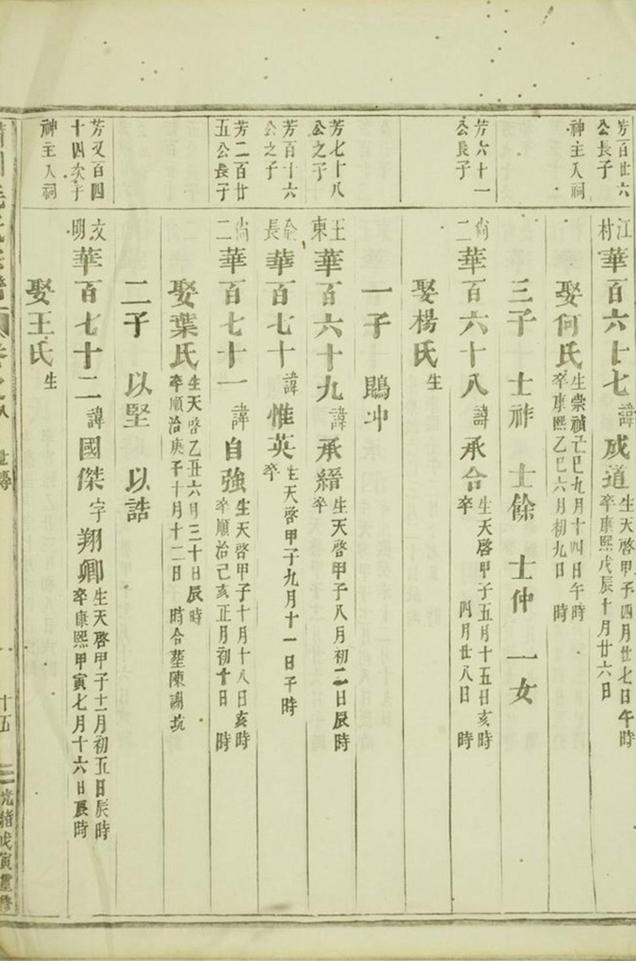 芳百廿六
公長子
江村
華百六十七 諱成道 生天啓甲子四月廿七日午時
卒康熙戊辰十月廿六日
神主入祠
娶何氏 生崇禎己巳九月十四日午時
卒康熙乙巳六月初九日 時
三子 士祚 士餘 士仲 一女
芳六十一
公長子
尙二
華百六十八 諱承合 生天啓甲子五月十五日亥時
卒 四月廿八日 時
娶楊氏 生
一子 鵾冲
芳七十八
公之子
王東
華百六十九 諱承縉 生天啓甲子八月初二日辰時
卒
芳百十六
公之子
長
華百七十 諱惟英 生天啓甲子九月十一日午時
卒
芳二百廿
五公長子
尙二
華百七十一 諱自強 生天啓甲子十月十八日亥時
卒順治己亥正月初十日 時
娶葉氏 生天啓乙丑六月三十日辰時
卒順治庚子十月十二日 時合塟陳謝坑
二子 以堅 以誥
芳又百四
十四次子
文明
華百七十二 諱國傑 字翔卿 生天啓甲子十二月初五日辰時
卒康熙甲寅七月十六日辰時
神主入祠
娶王氏 生
卷之 世傳
十五
光緒戊寅重修